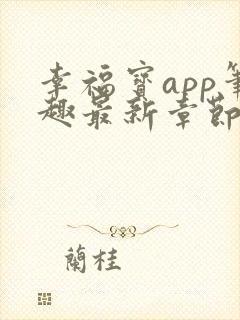 幸福寳app筆
趣最新章節
蘭桂